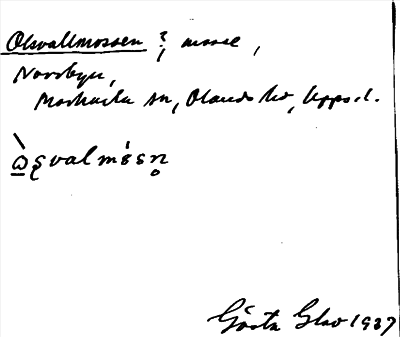 Olsvallmossen ?, mosse,
Norrbyn,
Morkarla sn, Olands hd, Uppsl.
ὼʂvalmósn̥
Gösta Glav 1937